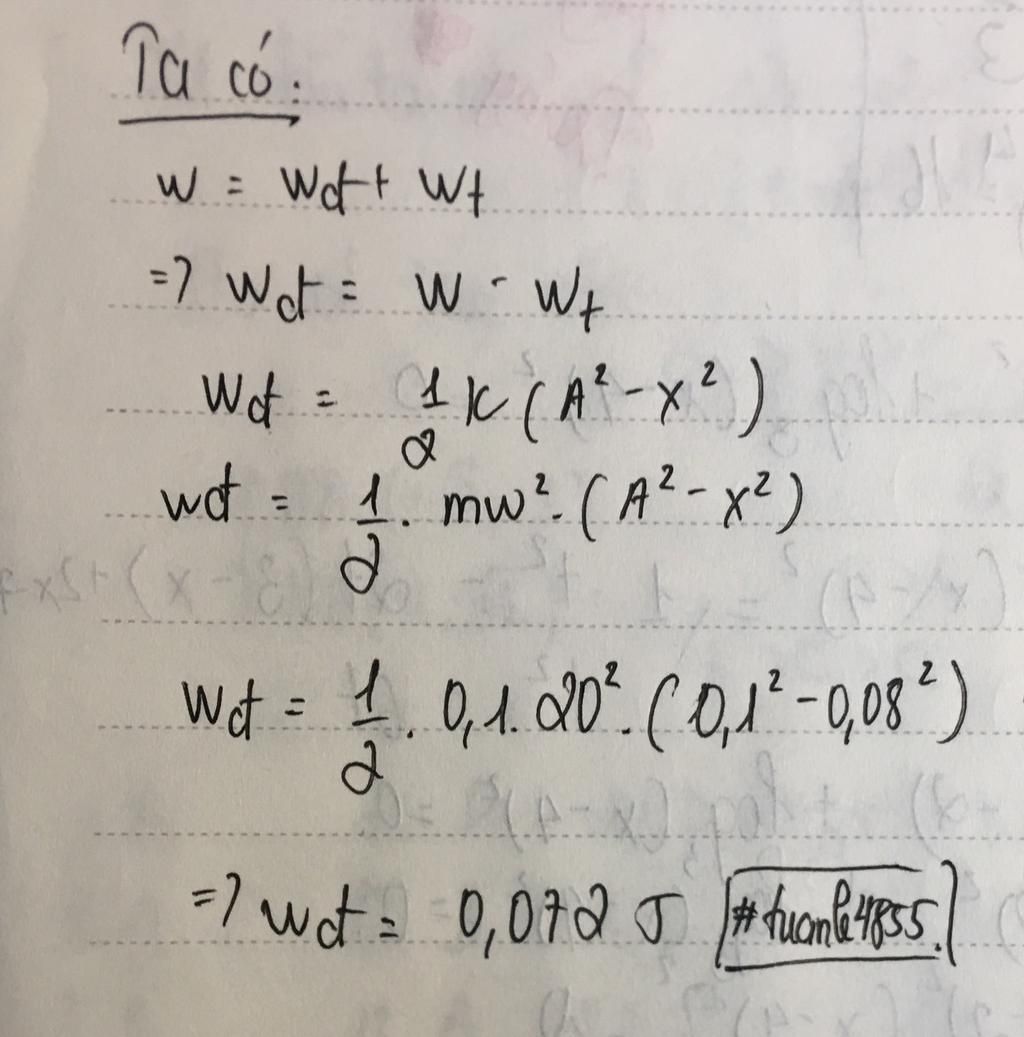 Ta có:
W = Wđ + Wt
=> Wđ = W - Wt
Wđ = 1/2 K (A² - x²)
Wđ = 1/2 . mw² . (A² - x²)
Wđ = 1/2 . 0,1 . 20² . (0,1² - 0,08²)
=> Wđ = 0,072 J #tuanle4855.